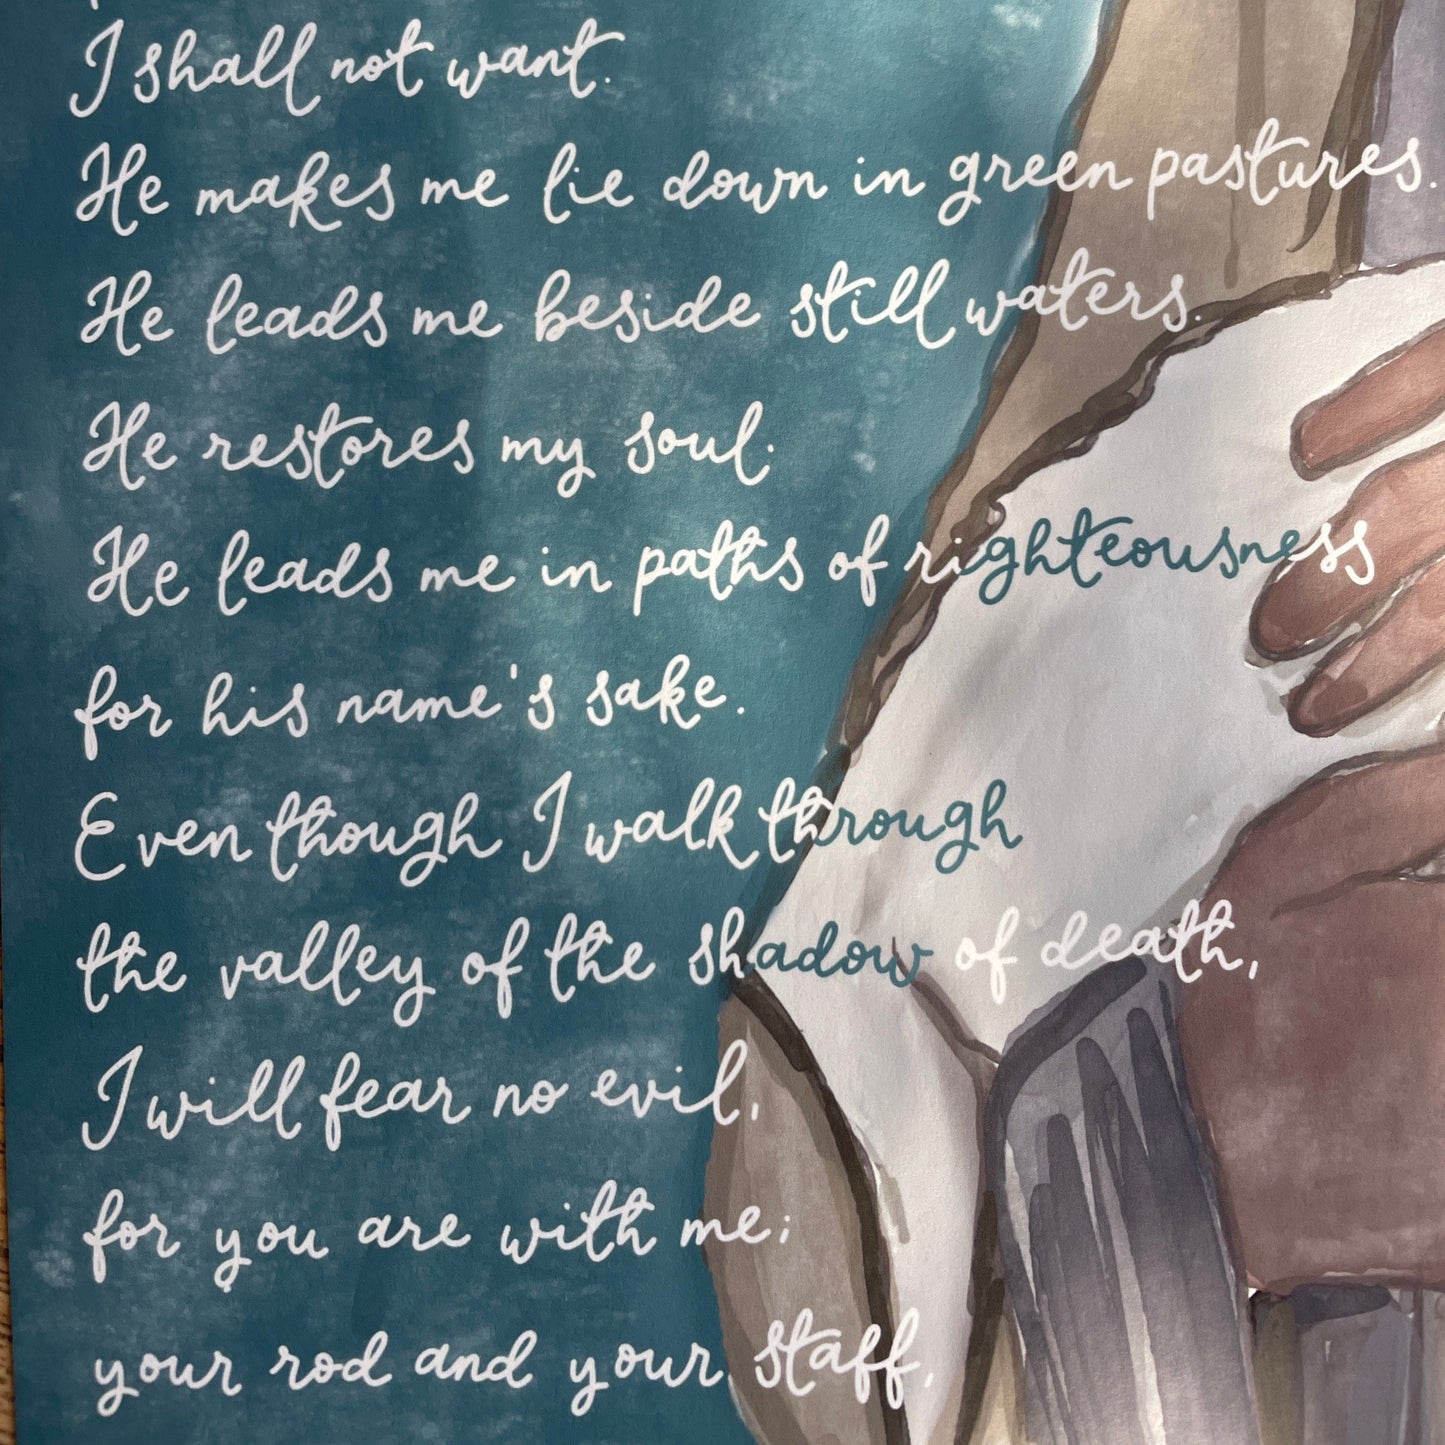 I shall not want.
He makes me lie down in green pastures.
He leads me beside still waters.
He restores my soul.
He leads me in paths of righteousness
for his name's sake.
Even though I walk through
the valley of the shadow of death,
I will fear no evil,
for you are with me;
your rod and your staff,